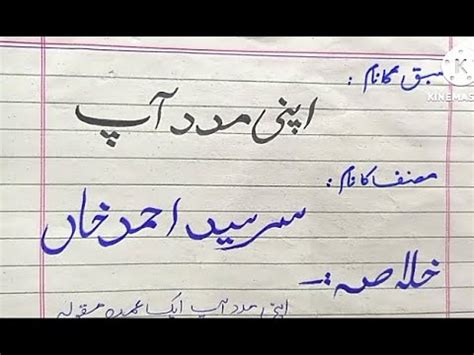 سبق کا نام :
اپنی مدد آپ
مصنف کا نام :
سر سید احمد خاں
خلاصہ :-
اپنی مدد آپ ایک عمدہ مقولہ
KINEMAS